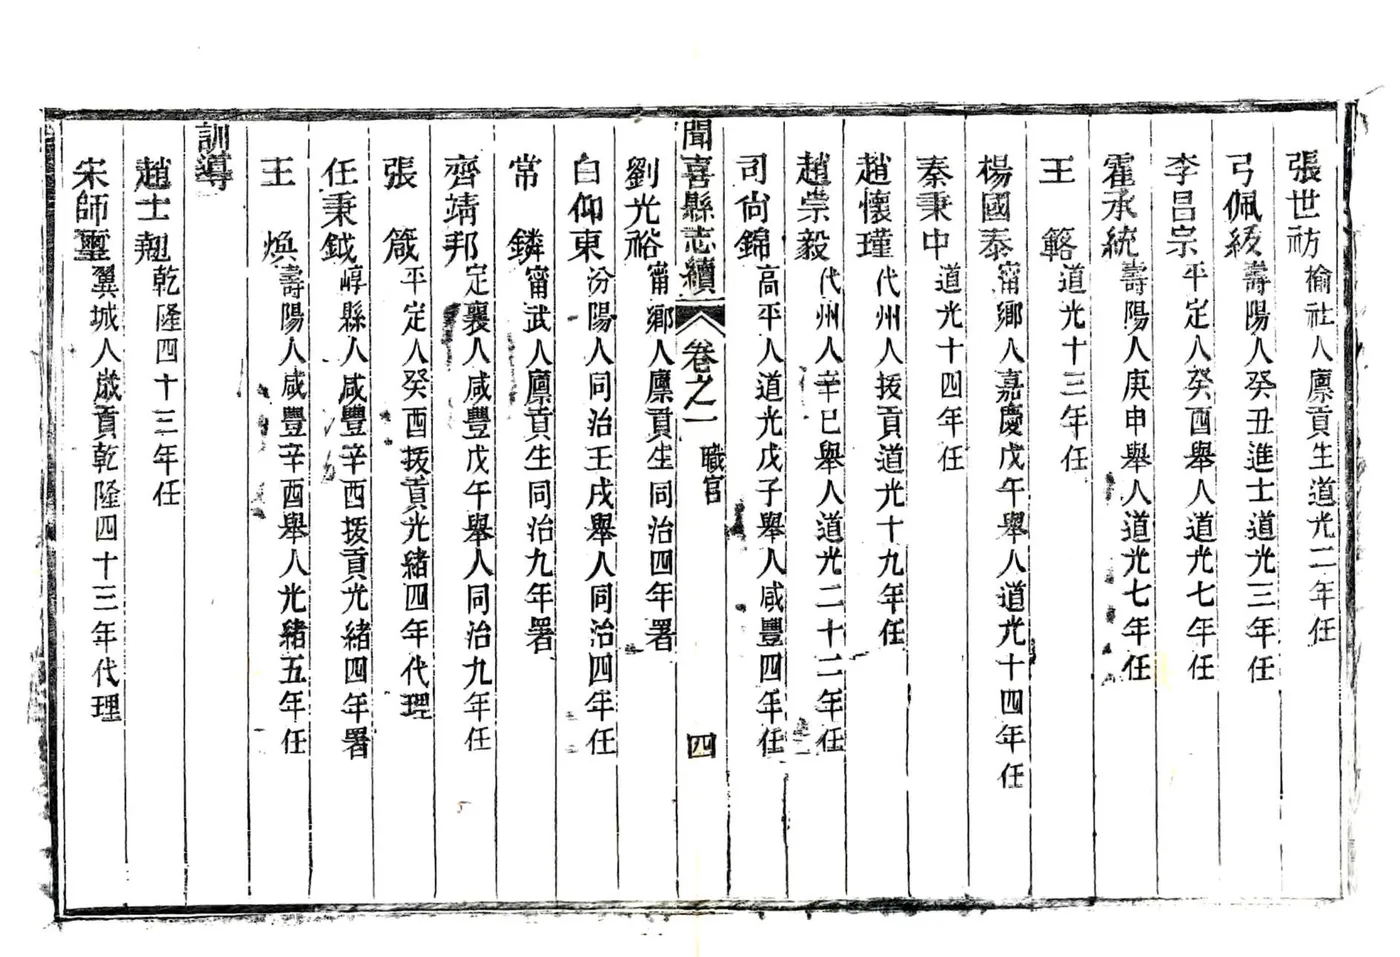 張世礽 榆社人廪貢生道光二年任
弓佩紱 壽陽人癸丑進士道光三年任
李昌宗 平定人癸酉舉人道光七年任
霍承統 壽陽人庚申舉人道光七年任
王簵 道光十三年任
楊國泰 甯鄉人嘉慶戊午舉人道光十四年任
秦秉中 道光十四年任
趙懷瑾 代州人拔貢道光十九年任
趙崇毅 代州人辛巳舉人道光二十二年任
司尙錦 高平人道光戊子舉人咸豐四年任
聞喜縣志續 卷之一 職官 四
劉光裕 甯鄉人廪貢生同治四年署
白仰東 汾陽人同治壬戌舉人同治四年任
常鏻 甯武人廪貢生同治九年署
齊靖邦 定襄人咸豐戊午舉人同治九年任
張箴 平定人癸酉拔貢光緒四年代理
任秉鉞 崞縣人咸豐辛酉拔貢光緒四年署
王煥 壽陽人咸豐辛酉舉人光緒五年任
訓導
趙士翹 乾隆四十三年任
宋師璽 翼城人歲貢乾隆四十三年代理